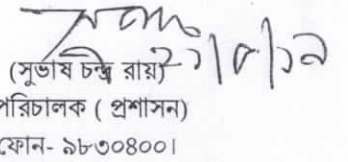 ২৭/৮/১৯
(সুভাষ চন্দ্র রায়)
পরিচালক ( প্রশাসন)
ফোন- ৯৮৩০৪০০১।